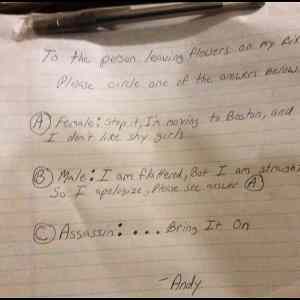 To the person leaving flowers on my
Please circle one of the answers below
A Female: Stop it, I'm moving to Boston, and
I don't like shy girls
B Male: I am flattered, But I am straight
So I apologize, Please see answer A
C Assassin: ... Bring It On
-Andy